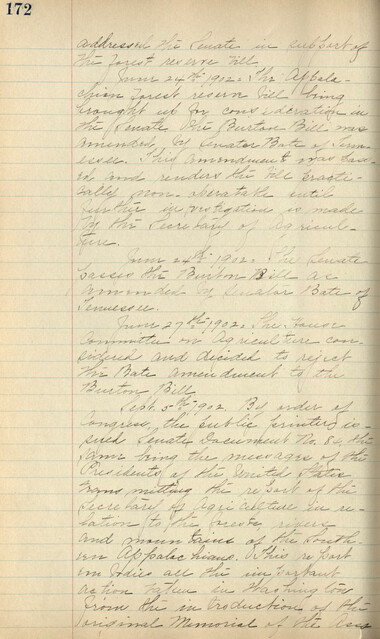 172
addressed the Senate in support of
the forest reserve bill.
June 24th 1902. The Appala-
chian Forest reserve bill being
brought up for consideration in
the Senate the Burton Bill was
amended by Senator Bate of Tenn-
essee. This amendment was pass-
ed and renders the bill practi-
cally non-operatable until
further investigation is made
by the Secretary of Agricul-
ture.
June 24th 1902. The Senate
passes the Burton Bill as
ammended by Senator Bate of
Tennessee.
June 27th 1902. The House
Committee on Agriculture con-
sidered and decided to reject
the Bate amendment to the
Burton Bill.
Sept. 5th 1902. By order of
Congress, the public printer is-
sued Senate Document No. 84, the
same being the messages of the
Presidents of the United States
transmitting the report of the
Secretary of Agriculture in re-
lation to the forests, rivers
and mountains of the South-
ern Appalachians. This report
embodies all the important
action taken in Washington
from the introduction of the
original Memorial of the